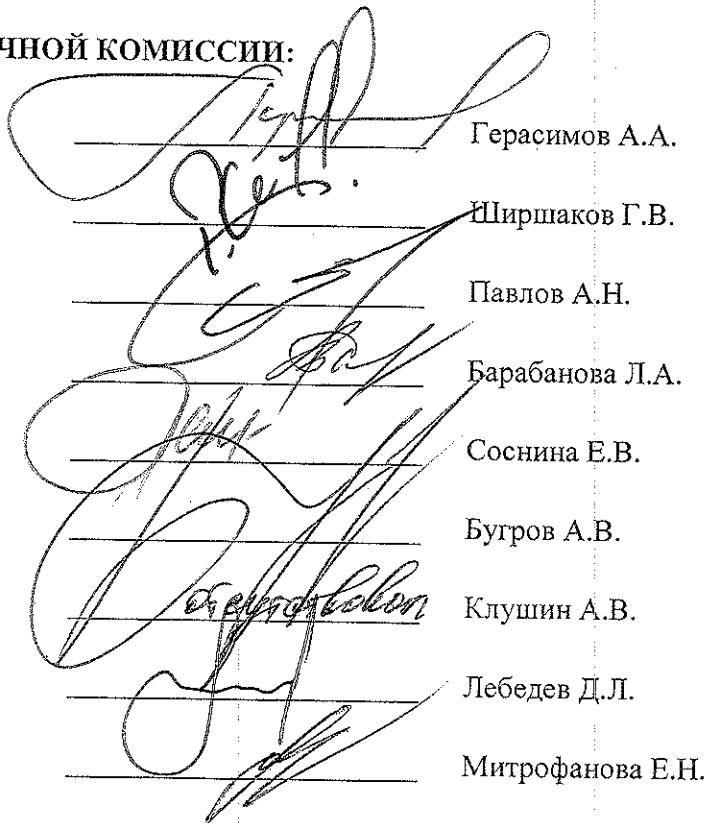 ЧНОЙ КОМИССИИ:
Герасимов А.А.
Ширшаков Г.В.
Павлов А.Н.
Барабанова Л.А.
Соснина Е.В.
Бугров А.В.
отсутствовал Клушин А.В.
Лебедев Д.Л.
Митрофанова Е.Н.